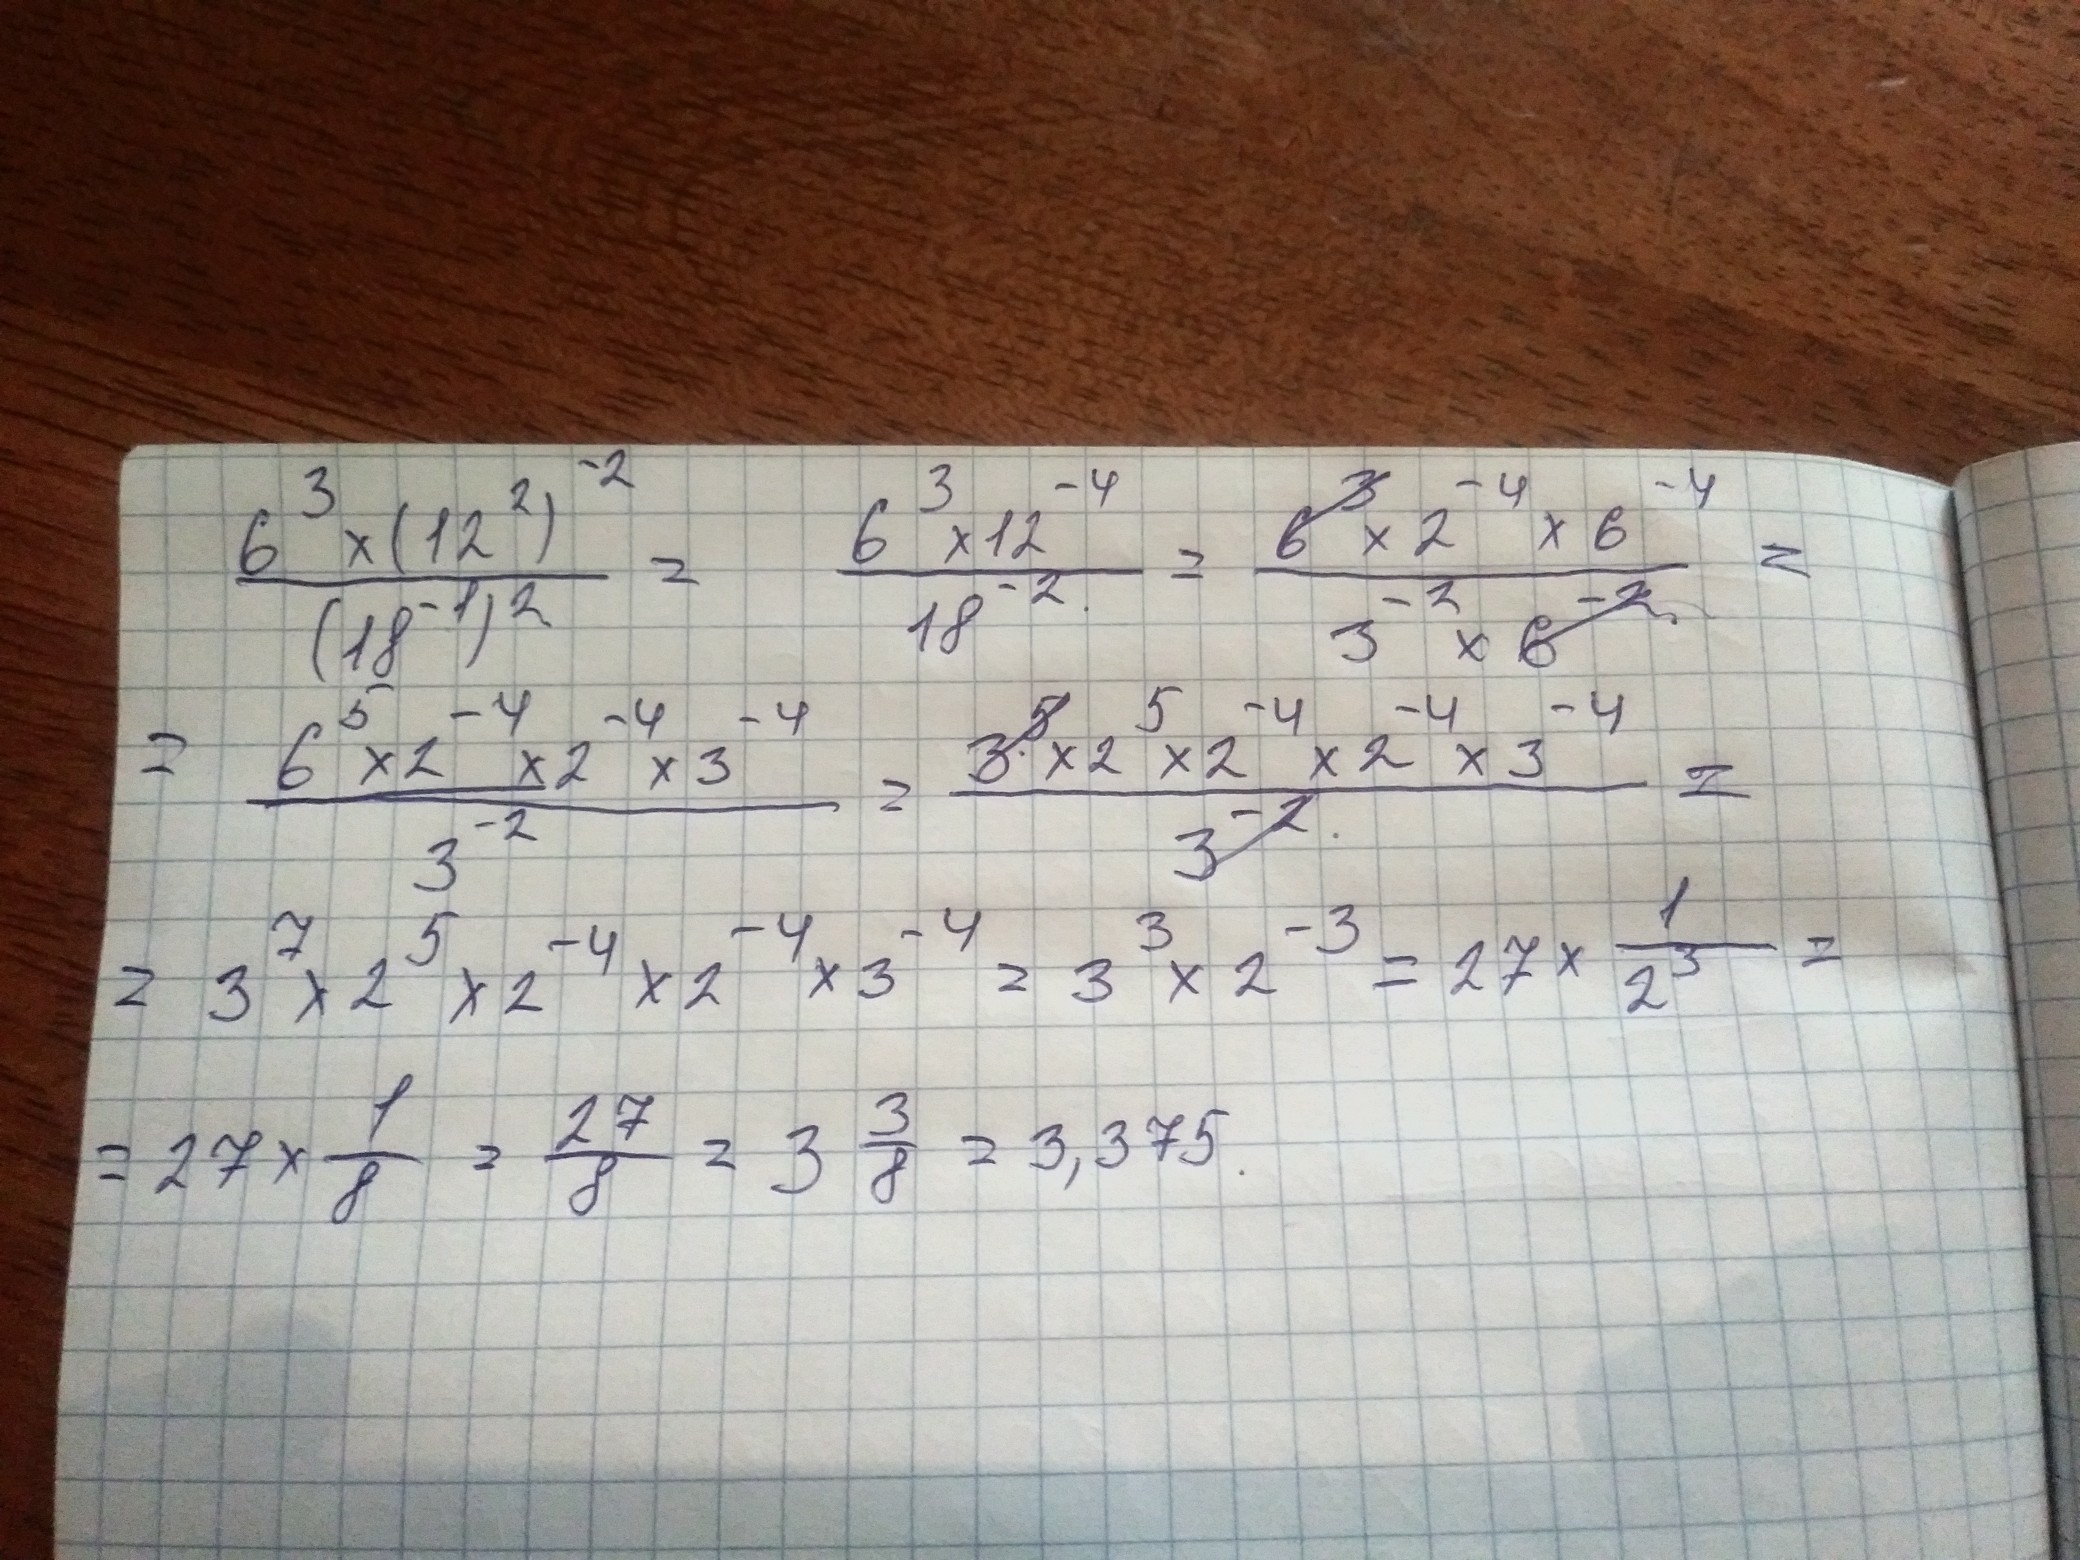 6³ × (12²)⁻² / (18⁻¹)² = 6³ × 12⁻⁴ / 18⁻² = 6³ × 2⁻⁴ × 6⁻⁴ / 3⁻² × 6⁻² =
= 6⁵ × 2⁻⁴ × 2⁻⁴ × 3⁻⁴ / 3⁻² = 3⁵ × 2⁵ × 2⁻⁴ × 2⁻⁴ × 3⁻⁴ / 3⁻² =
= 3⁷ × 2⁵ × 2⁻⁴ × 2⁻⁴ × 3⁻⁴ = 3³ × 2⁻³ = 27 × 1/2³ =
= 27 × 1/8 = 27/8 = 3 3/8 = 3,375.